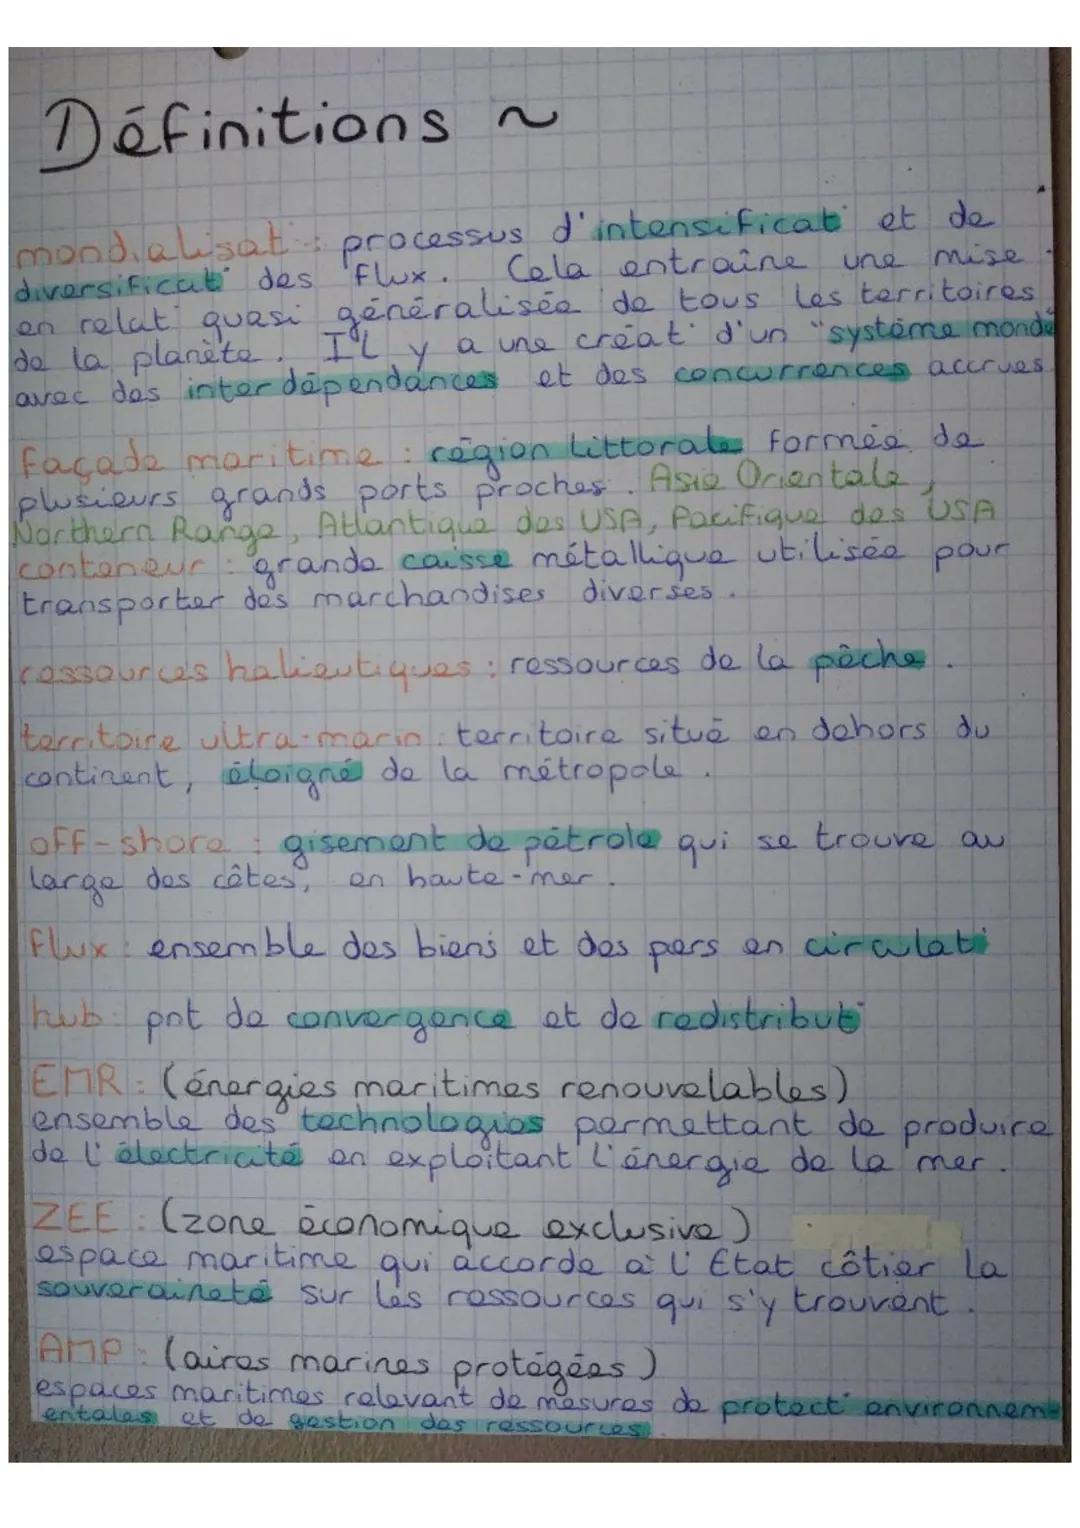 Définitions ~
mondialisat° : processus d'intensificat° et de
diversificat° des flux. Cela entraîne une mise
en relat° quasi généralisée de tous les territoires
de la planète. Il y a une créat° d'un "système monde
avec des interdépendances et des concurrences accrues.
façade maritime : région littorale formée de
plusieurs grands ports proches. Asie Orientale,
Northern Range, Atlantique des USA, Pacifique des USA
conteneur : grande caisse métallique utilisée pour
transporter des marchandises diverses.
ressources halieutiques : ressources de la pêche.
territoire ultra-marin : territoire situé en dehors du
continent, éloigné de la métropole.
off-shore : gisement de pétrole qui se trouve au
large des côtes, en haute-mer.
flux : ensemble des biens et des pers en circulat°
hub : pnt de convergence et de redistribut°
EMR : (énergies maritimes renouvelables)
ensemble des technologies permettant de produire
de l'électricité en exploitant l'énergie de la mer.
ZEE : (zone économique exclusive)
espace maritime qui accorde à l'Etat côtier la
souveraineté sur les ressources qui s'y trouvent.
AMP : (aires marines protégées)
espaces maritimes relevant de mesures de protect° environnem-
entales et de gestion des ressources.